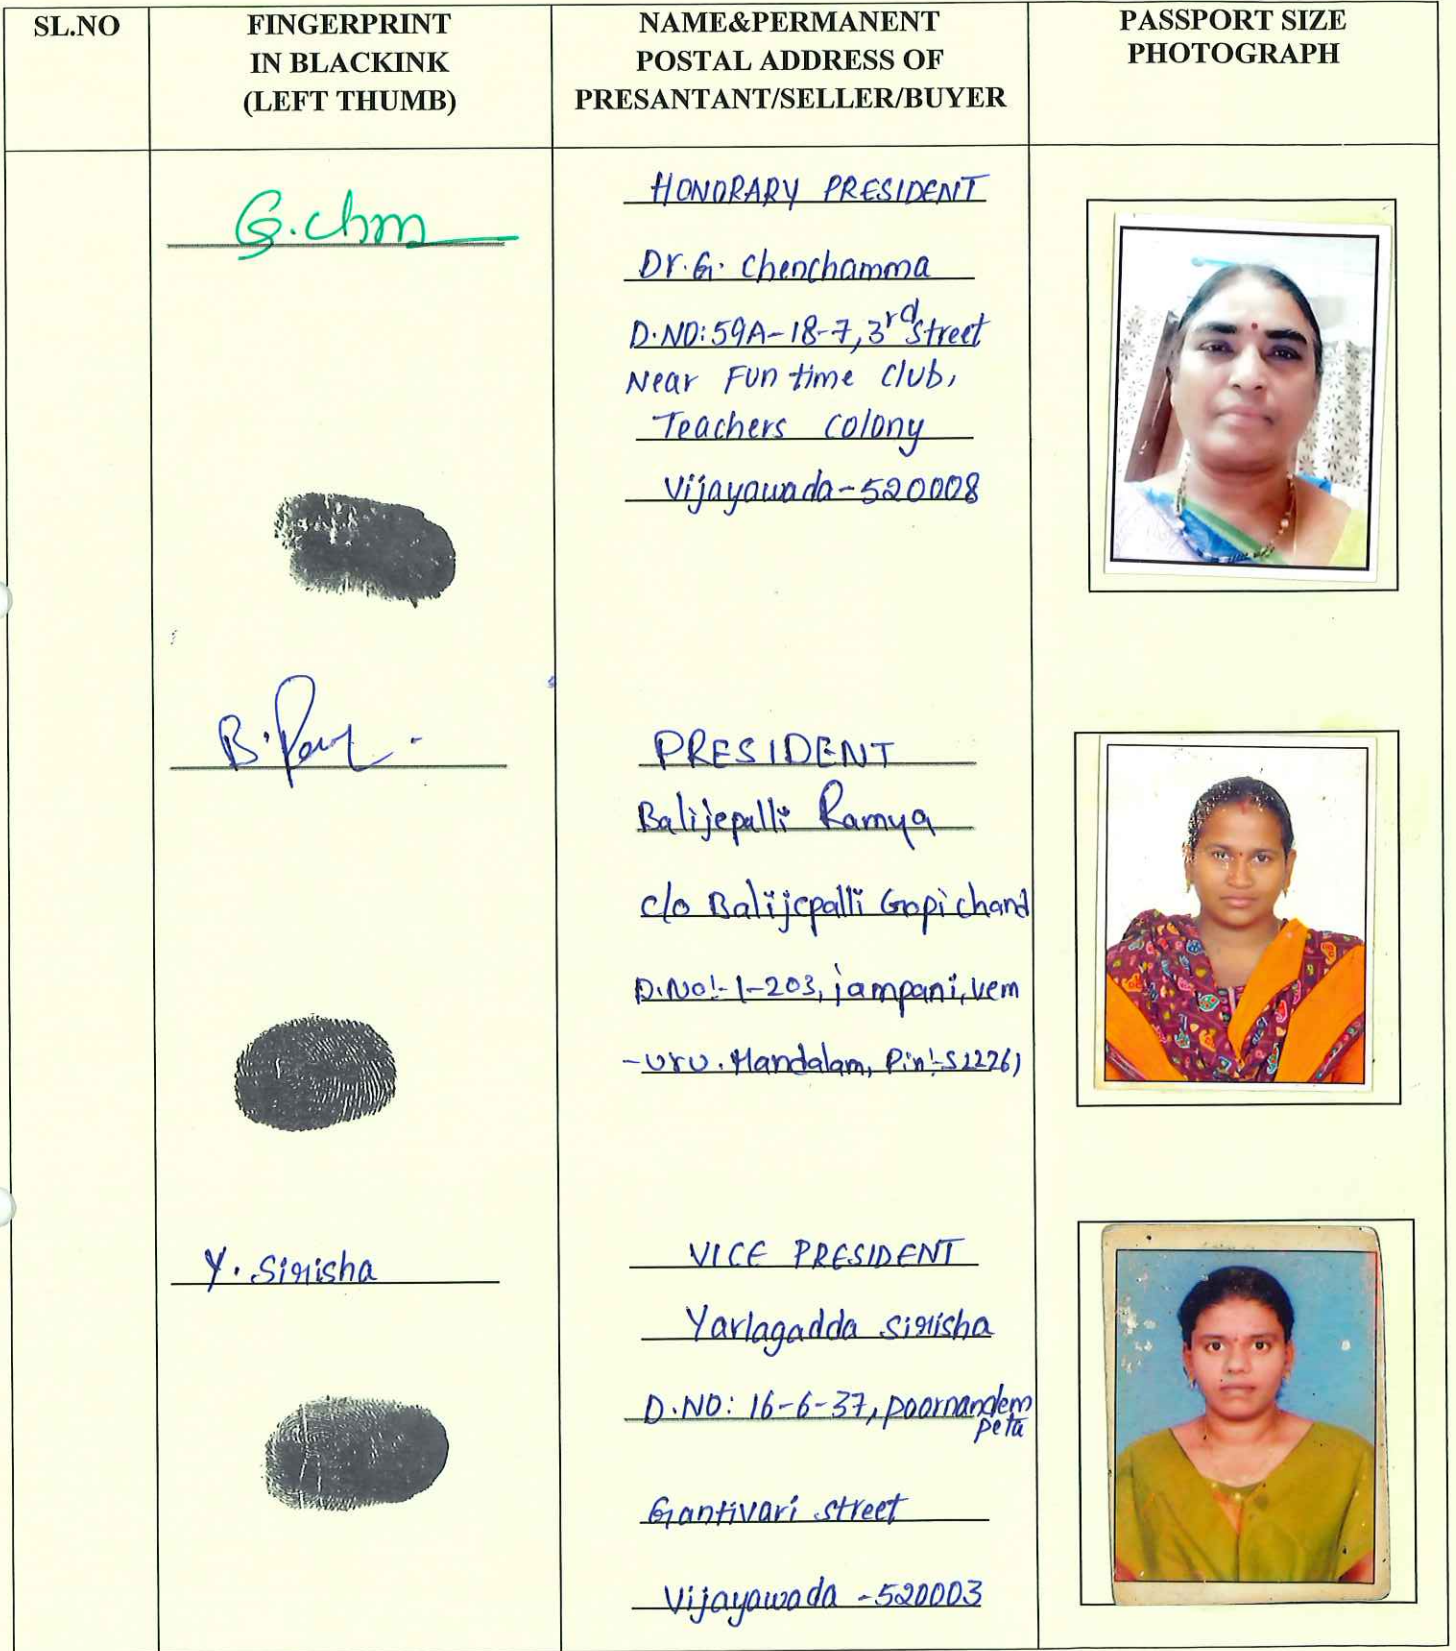 SL.NO
FINGERPRINT
IN BLACKINK
(LEFT THUMB)
NAME&PERMANENT
POSTAL ADDRESS OF
PRESANTANT/SELLER/BUYER
PASSPORT SIZE
PHOTOGRAPH
G.chm
HONORARY PRESIDENT
Dr.G. Chenchamma
D.NO:59A-18-7,3rd street
Near Fun time club,
Teachers colony
Vijayawada-520008
B.
PRESIDENT
Balijepalli Ramya
c/o Balijepalli Gopichand
D.No:-1-203, jampani, vem
-uru. Mandalam, Pin:-522261
Y. Sirisha
VICE PRESIDENT
Yarlagadda sirisha
D.NO: 16-6-37, poornandem
peta
Gantivari street
Vijayawada -520003